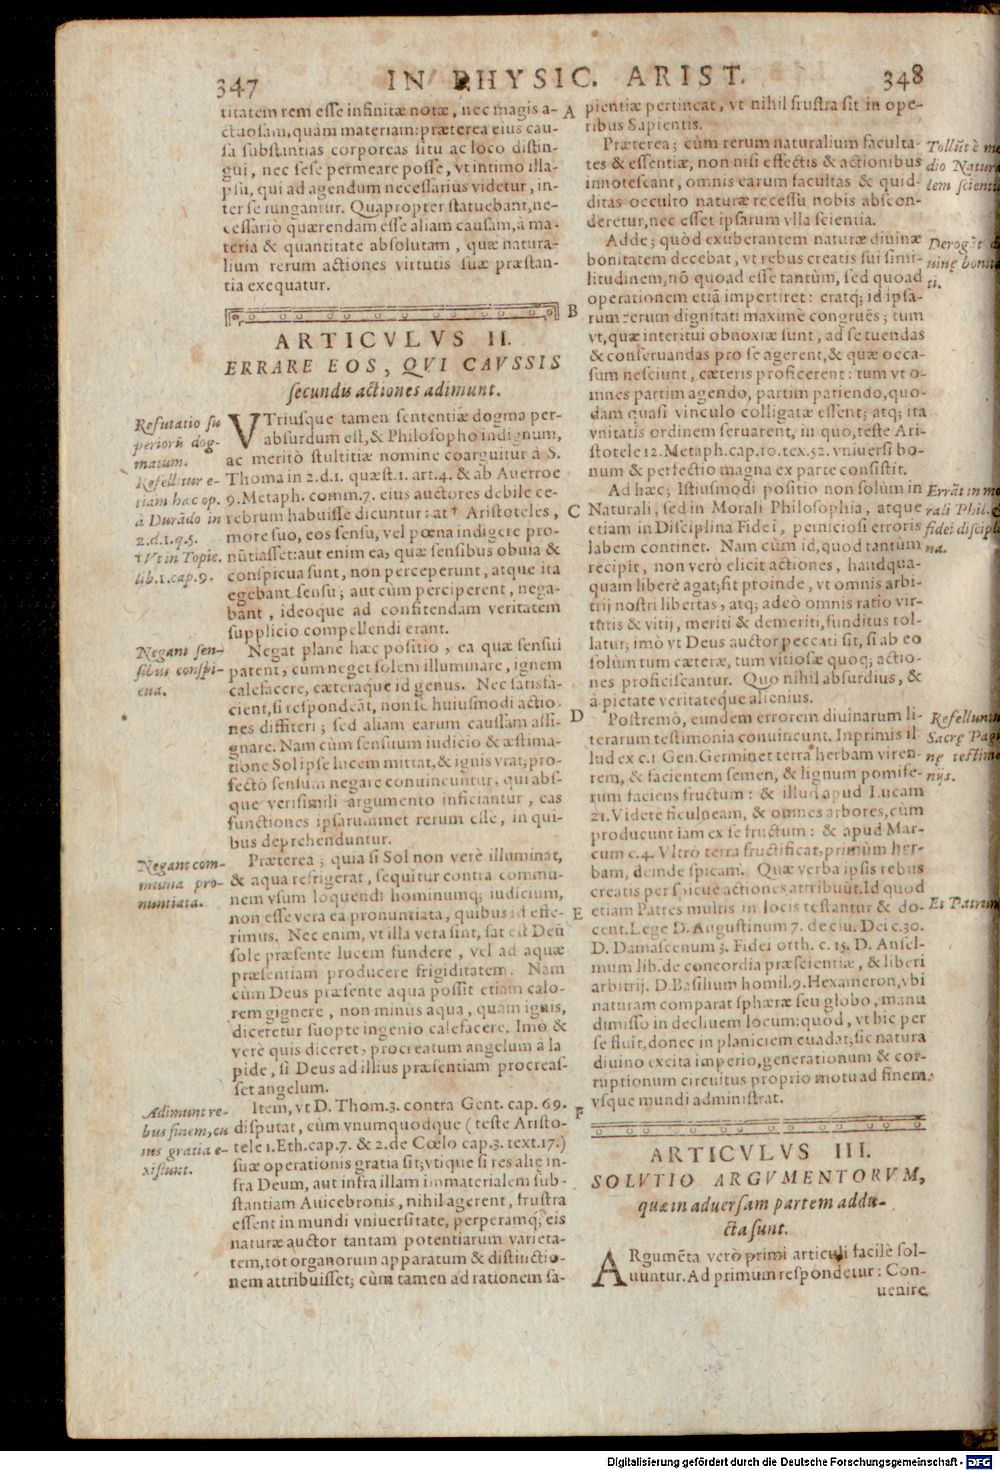 347
IN PHYSIC. ARIST.
348
titatem rem esse infinitæ notæ, nec magis a-
ctuosam, quàm materiam: præterea eius cau-
sa substantias corporeas situ ac loco distin-
gui, nec sese permeare posse, vt intimo illa-
psu, qui ad agendum necessarius videtur, in-
ter se iungantur. Quapropter statuebant, ne-
cessariò quærendam esse aliam causam, à ma-
teria & quantitate absolutam, quæ natura-
lium rerum actiones virtutis suæ præstan-
tia exequatur.
ARTICVLVS II.
ERRARE EOS, QVI CAVSSIS
secundis actiones adimunt.
Refutatio su
perioru dog-
matum.
Refellitur e-
tiam hæc op.
à Durādo in
2.d.1.q.5.
† Vt in Topic.
lib.1.cap.9.
VTriusque tamen sententiæ dogma per-
absurdum est, & Philosopho indignum,
ac meritò stultitiæ nomine coarguitur à S.
Thoma in 2.d.1. quæst.1. art.4. & ab Auerroe
9. Metaph. comm.7. eius auctores debile ce-
rebrum habuisse dicuntur: at † Aristoteles,
more suo, eos sensu, vel pœna indigere pro-
nūtiasset: aut enim ea, quæ sensibus obuia &
conspicua sunt, non perceperunt, atque ita
egebant sensu; aut cùm perciperent, nega-
bant, ideoque ad confitendam veritatem
supplicio compellendi erant.
Negant sen-
sibus conspi-
cua.
Negat plane hæc positio, ea quæ sensui
patent, cum neget solem illuminare, ignem
calefacere, cæteraque id genus. Nec satisfa-
cient, si respondeāt, non se huiusmodi actio-
nes diffiteri; sed aliam earum caussam assi-
gnare. Nam cùm sensuum iudicio & æstima-
tione Sol ipse lucem mittat, & ignis vrat; pro-
fectò sensum negare conuincuntur, qui abs-
que verisimili argumento inficiantur, eas
functiones ipsarummet rerum esse, in qui-
bus deprehenduntur.
Negant com-
munia pro-
nuntiata.
Præterea; quia si Sol non verè illuminat,
& aqua refrigerat, sequitur contra commu-
nem vsum loquendi hominumq; iudicium,
non esse vera ea pronuntiata, quibus id effe-
rimus. Nec enim, vt illa vera sint, sat est Deū
sole præsente lucem fundere, vel ad aquæ
præsentiam producere frigiditatem. Nam
cùm Deus præsente aqua possit etiam calo-
rem gignere, non minus aqua, quam ignis,
diceretur suopte ingenio calefacere. Imò &
verè quis diceret, procreatum angelum à la
pide, si Deus ad illius præsentiam procreas-
set angelum.
Adimunt re-
bus finem, cu
ius gratia e-
xistunt.
Item, vt D. Thom.3. contra Gent. cap. 69.
disputat, cùm vnumquodque (teste Aristo-
tele 1. Eth.cap.7. & 2. de Cœlo cap.3. text.17.)
suæ operationis gratia sit; vtique si res alię in-
fra Deum, aut infra illam immaterialem sub-
stantiam Auicebronis, nihil agerent, frustra
essent in mundi vniuersitate, perperamq; eis
naturæ auctor tantam potentiarum varieta-
tem, tot organorum apparatum & distinctio-
nem attribuisset; cùm tamen ad rationem sa-
A
B
C
D
E
F
pientiæ pertineat, vt nihil frustra sit in ope-
ribus Sapientis.
Præterea; cùm rerum naturalium faculta-
tes & essentiæ, non nisi effectis & actionibus
innotescant, omnis earum facultas & quid-
ditas occulto naturæ recessu nobis abscon-
deretur, nec esset ipsarum vlla scientia.
Tollūt è me
dio Natura
lem scienti
Adde; quòd exuberantem naturæ diuinæ
bonitatem decebat, vt rebus creatis sui simi-
litudinem, nō quoad esse tantùm, sed quoad
operationem etiā impertiret: eratq; id ipsa-
rum rerum dignitati maximè congruēs; tum
vt, quæ interitui obnoxiæ sunt, ad se tuendas
& conseruandas pro se agerent, & quæ occa-
sum nesciunt, cæteris proficerent: tum vt o-
mnes partim agendo, partim patiendo, quo-
dam quasi vinculo colligatæ essent; atq; ita
vnitatis ordinem seruarent, in quo, teste Ari-
stotele 12. Metaph. cap.10. tex.52. vniuersi bo-
num & perfectio magna ex parte consistit.
Derogāt di
uinę bonita
ti.
Ad hæc; Istiusmodi positio non solùm in
Naturali, sed in Morali Philosophia, atque
etiam in Disciplina Fidei, perniciosi erroris
labem continet. Nam cùm id, quod tantùm
recipit, non verò elicit actiones, haudqua-
quam liberè agat; fit proinde, vt omnis arbi-
trij nostri libertas, atq; adeò omnis ratio vir-
tūtis & vitij, meriti & demeriti, funditus tol-
latur; imò vt Deus auctor peccati sit, si ab eo
solùm tum cæteræ, tum vitiosæ quoq; actio-
nes proficiscantur. Quo nihil absurdius, &
à pietate veritateque alienius.
Errāt in mo
rali Phil. &
fidei discipli
na.
Postremò, eundem errorem diuinarum li-
terarum testimonia conuincunt. Inprimis il-
lud ex c.1 Gen. Germinet terra herbam viren-
tem, & facientem semen, & lignum pomife-
rum faciens fructum: & illud apud Lucam
21. Videte ficulneam, & omnes arbores, cùm
producunt iam ex se fructum: & apud Mar-
cum c.4. Vltrò terra fructificat, primùm her-
bam, deinde spicam. Quæ verba ipsis rebus
creatis perspicuè actiones attribuūt. Id quod
etiam Patres multis in locis testantur & do-
cent. Lege D. Augustinum 7. de ciu. Dei c.30.
D. Damascenum 3. Fidei orth. c. 15. D. Ansel-
mum lib. de concordia præscientiæ, & liberi
arbitrij. D. Basilium homil.9. Hexameron, vbi
naturam comparat sphæræ seu globo, manu
dimisso in decliuem locum: quòd, vt hic per
se fluit, donec in planiciem euadat; sic natura
diuino excita imperio, generationum & cor-
ruptionum circuitus proprio motu ad finem
vsque mundi administrat.
Refelluntu
Sacrę Pagi
nę testimo
nijs.
Et Patrum
ARTICVLVS III.
SOLVTIO ARGVMENTORVM,
quæ in aduersam partem addu-
cta sunt.
ARgumēta verò primi articuli facilè sol-
uuntur. Ad primum respondetur: Con-
uenire
Digitalisierung gefördert durch die Deutsche Forschungsgemeinschaft - DFG